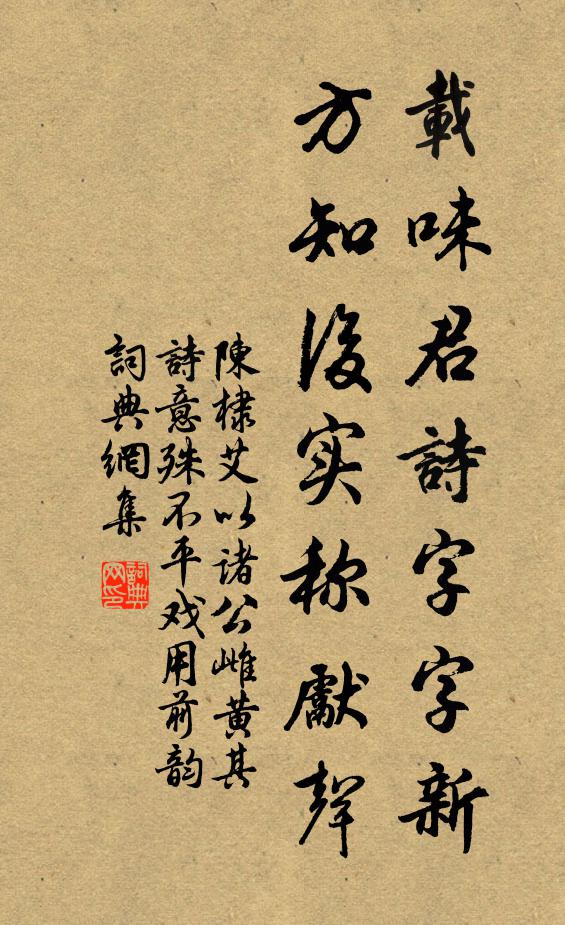 載味君詩字字新
方知後实称獻聲
陳棣艾以诸公雌黄其
詩意殊不平戏用前韵
詞典網集
詞典网印